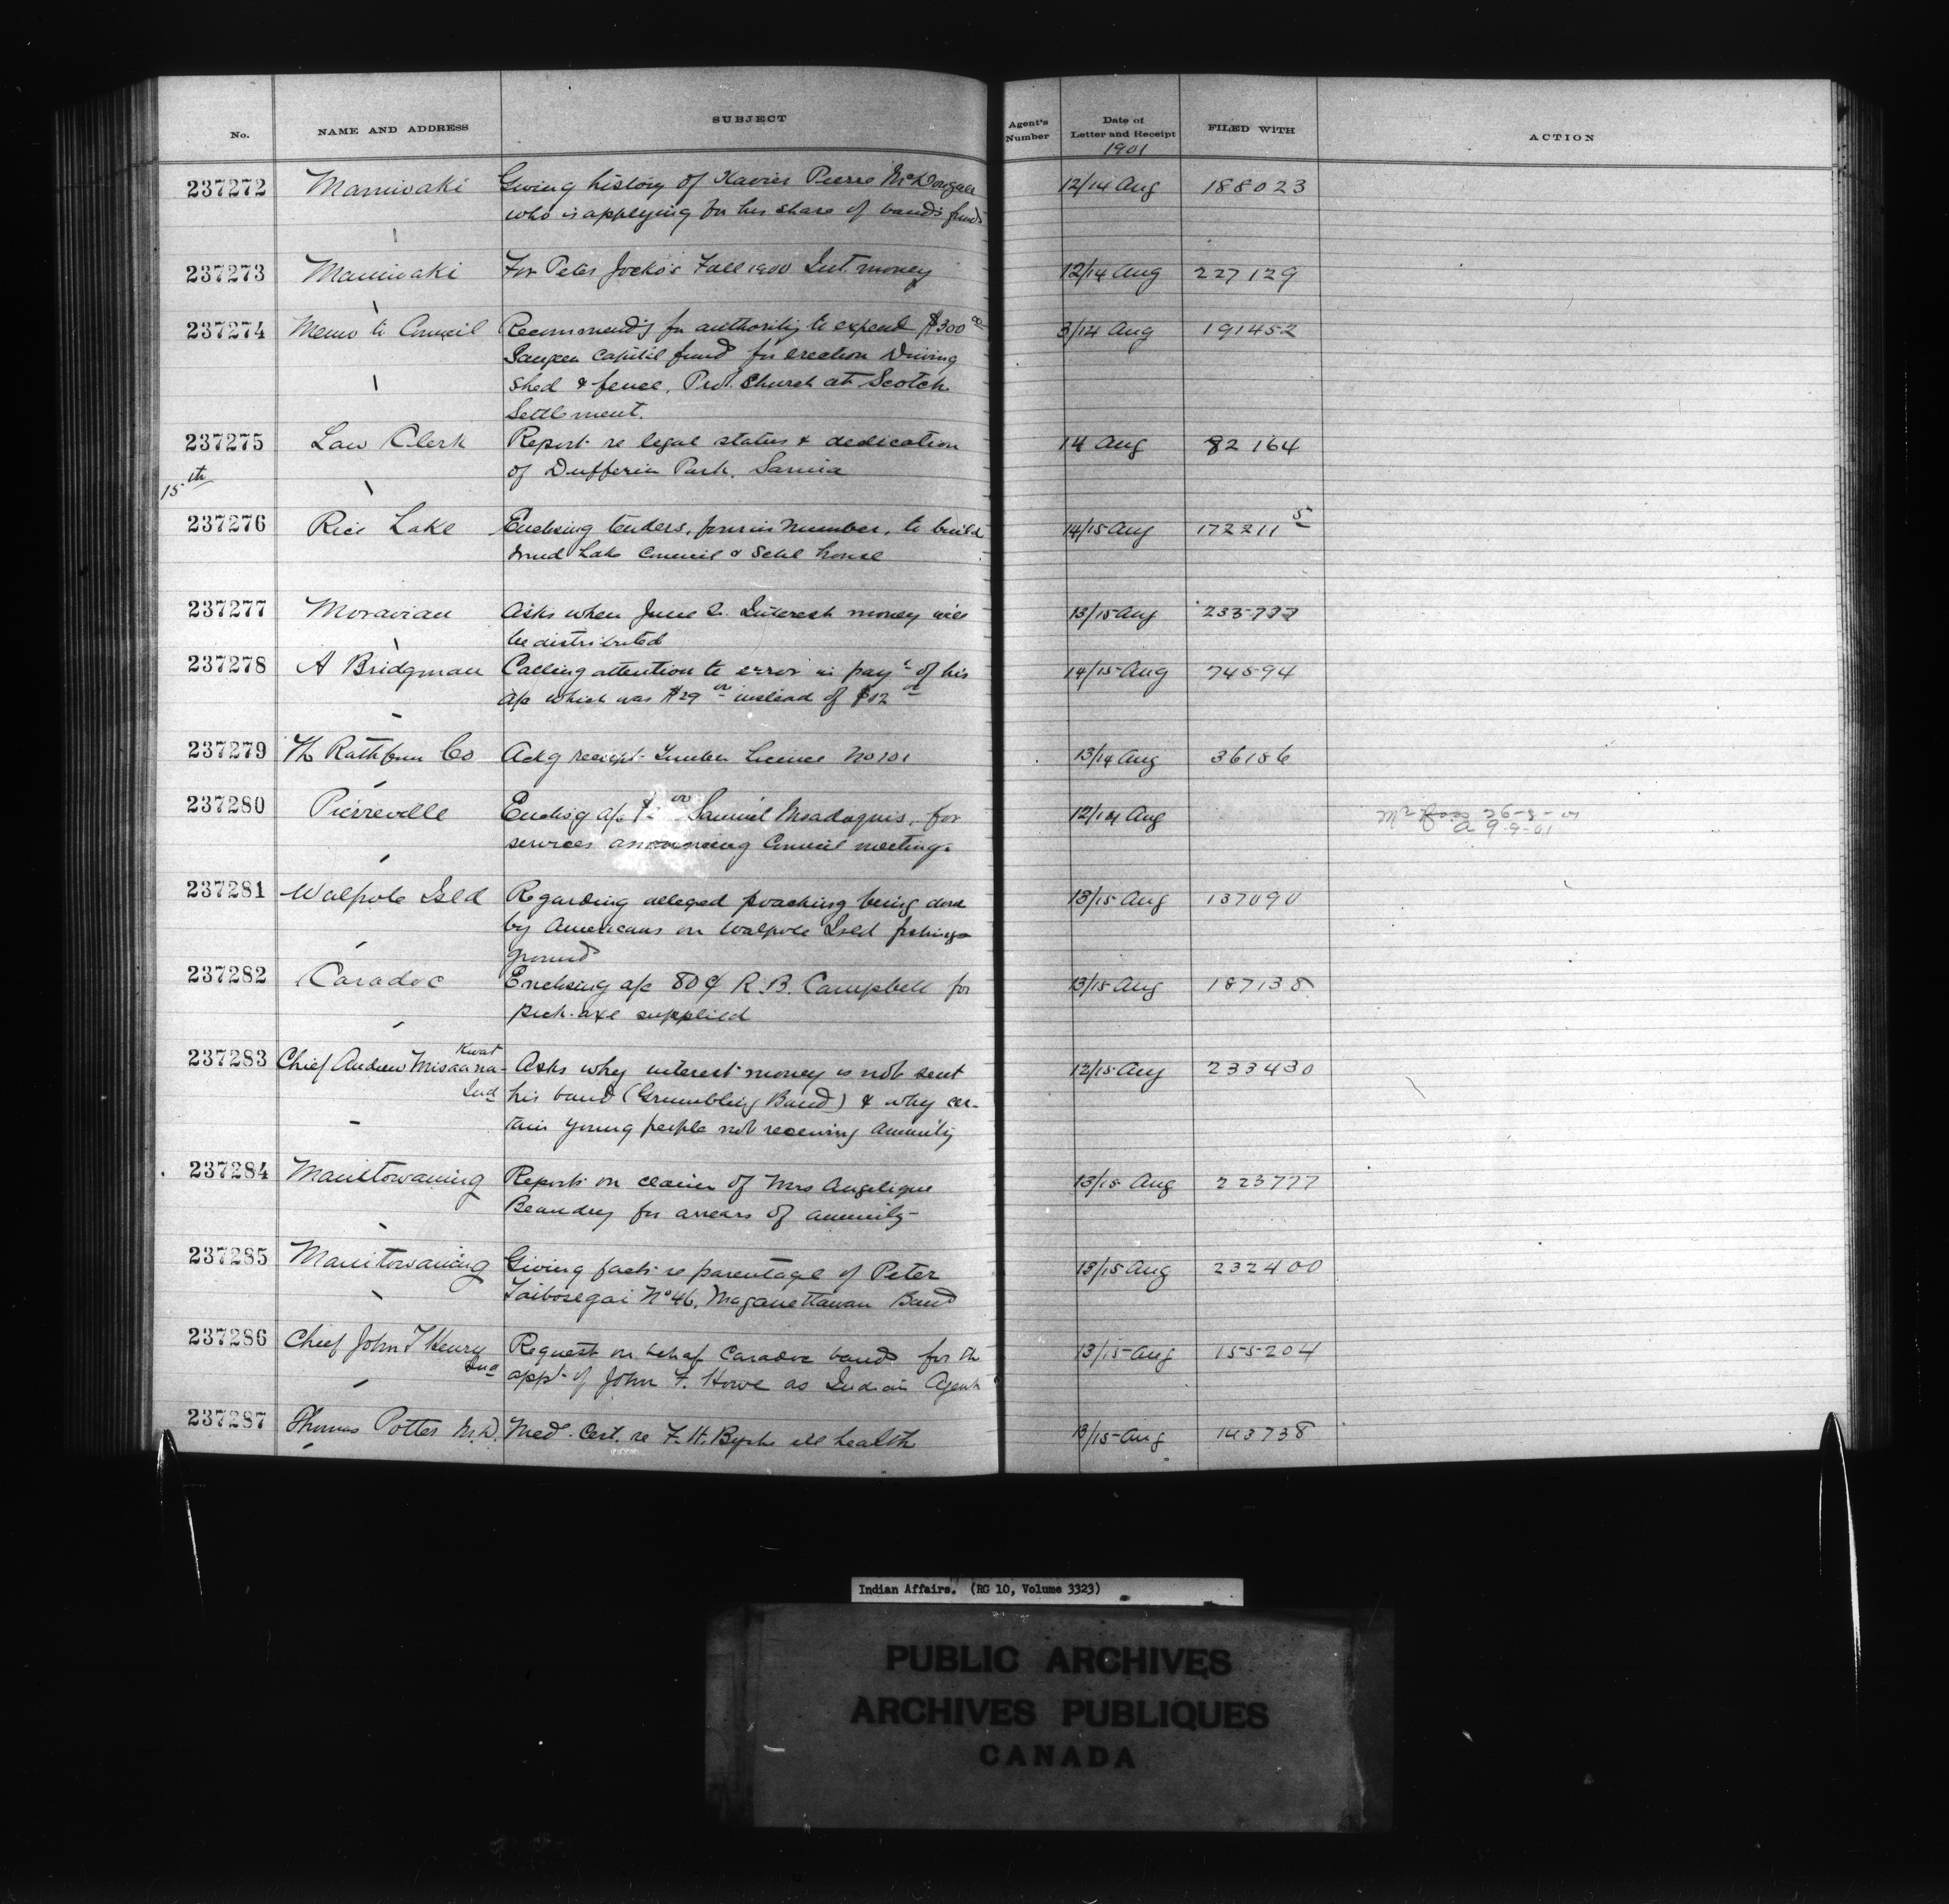 No. NAME AND ADDRESS SUBJECT Agent's Number Date of Letter and Receipt FILED WITH ACTION
1901
237272 Maniwaki Giving history of Xavier Pierre McDougall 12/14 Aug 188023
who is applying for his share of band's funds
237273 Maniwaki For Peter Jocko's Fall 1900 Int. money 12/14 Aug 227129
237274 Memo to Council Recommend'g for authority to expend $300 00 3/14 Aug 191452
Saugeen Capital fund for erection Driving
shed & fence, Prot. Church at Scotch
Settlement.
237275 Law Clerk Report re legal status & dedication 14 Aug 82164
of Dufferin Park, Sarnia
15th
237276 Rice Lake Enclosing tenders, four in number, to build 14/15 Aug 172211 5
Mud Lake Council & Schl house
237277 Moravian Asks when June Interest money will 13/15 Aug
be distributed
237278 A Bridgman Calling attention to error in payt of his 14/15 Aug 74594
a/c which was $29 00 instead of $12 00
237279 Th Rathbun Co Ackg receipt Timber License No 101 13/14 Aug 36186
237280 Pierreville Enclosg a/c Samuel Msadoquis, for 12/14 Aug
services announcing Council meetings
237281 Walpole Isld Regarding alleged poaching being done 13/15 Aug 137090
by Americans on Walpole Isld fishing
ground
237282 Caradoc Enclosing a/c 80¢ R. B. Campbell for 13/15 Aug 187138
pick-axe supplied
237283 Chief Andrew Misaana- Kwat Asks why interest money is not sent 12/15 Aug 233430
Ind his band (Grumbling Band) & why cer-
tain young people not receiving annuity
237284 Manitowaning Reports on claim of Mrs Angelique 13/15 Aug 223777
Beaudry for arrears of annuity
237285 Manitowaning Giving facts re parentage of Peter 13/15 Aug 232400
No 46, Maganettawan Band
237286 Chief John T Henry Request on behalf Caradoc band for th 13/15 Aug 155204
Ind appt of John F. Howe as Indian Agent
237287 Thomas Potter M.D. Med. Cert. re F. H. Byshe ill health 13/15 Aug 143738
Indian Affairs. (RG 10, Volume 3323)
PUBLIC ARCHIVES
ARCHIVES PUBLIQUES
CANADA